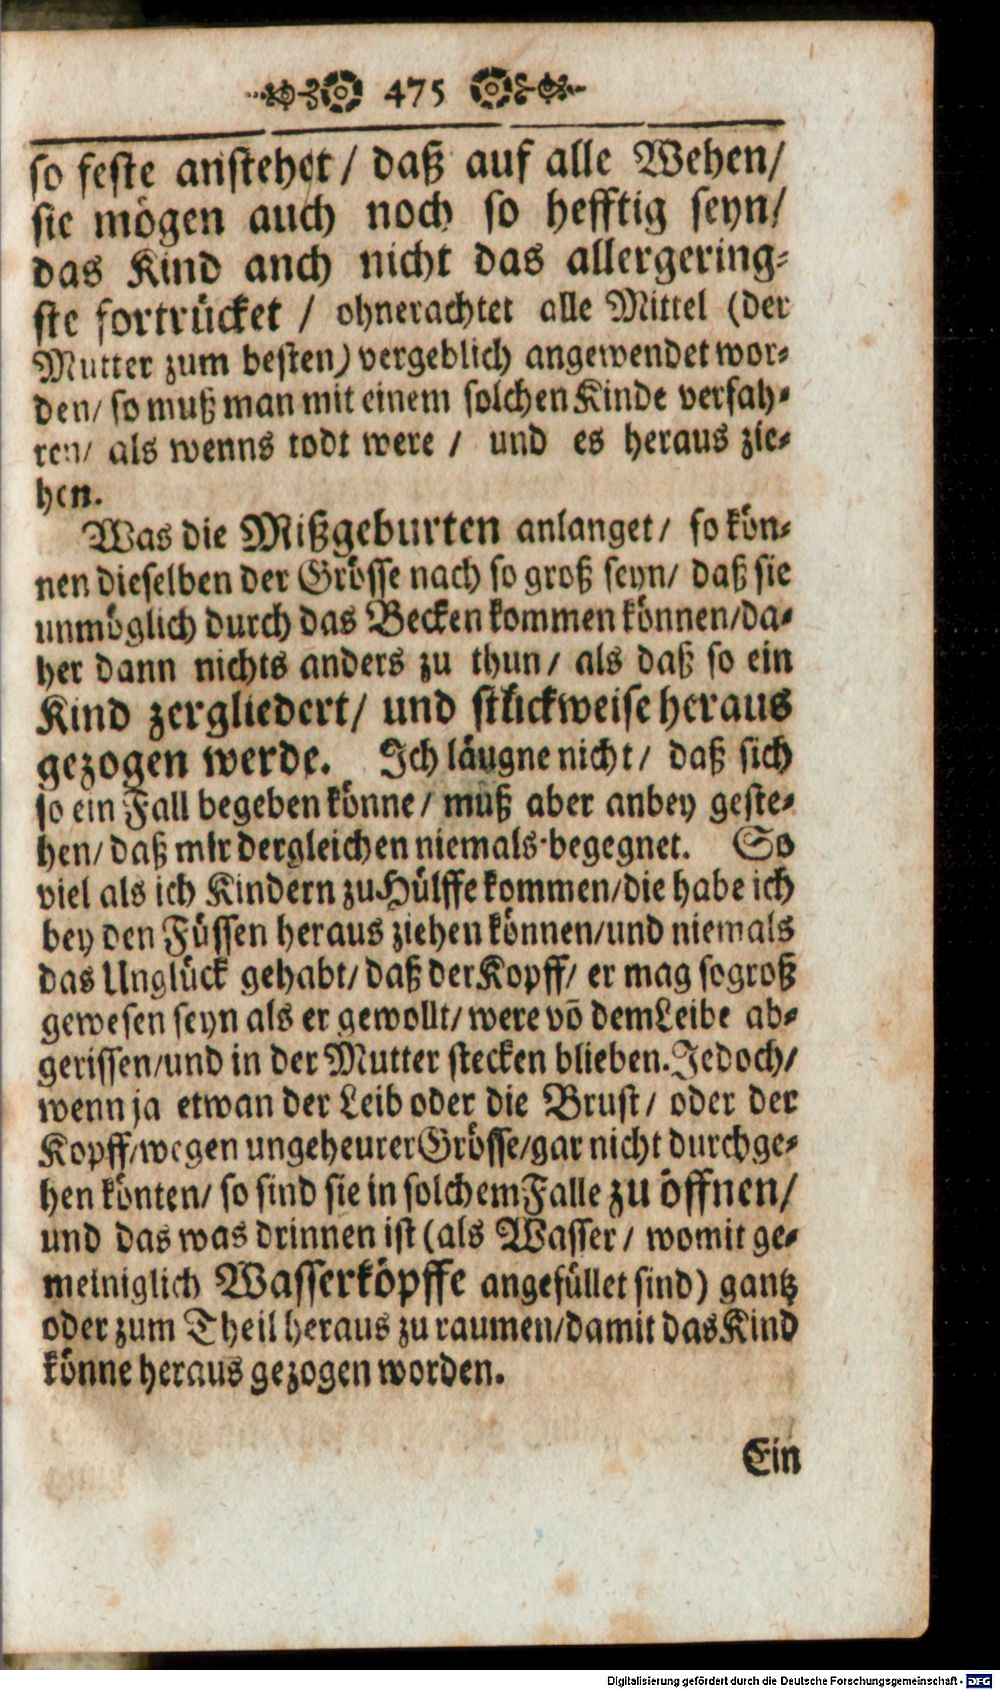 475
so feste anstehet / daß auf alle Wehen/
sie mögen auch noch so hefftig seyn/
das Kind anch nicht das allergering-
ste fortrücket / ohnerachtet alle Mittel (der
Mutter zum besten) vergeblich angewendet wor-
den/ so muß man mit einem solchen Kinde verfah-
ren/ als wenns todt were / und es heraus zie-
hen.
Was die Mißgeburten anlanget / so kön-
nen dieselben der Grösse nach so groß seyn/ daß sie
unmöglich durch das Becken kommen können/da-
her dann nichts anders zu thun / als daß so ein
Kind zergliedert/ und stückweise heraus
gezogen werde. Ich läugne nicht / daß sich
so ein Fall begeben könne / muß aber anbey geste-
hen/ daß mir dergleichen niemals begegnet. So
viel als ich Kindern zu Hülffe kommen/die habe ich
bey den Füssen heraus ziehen können/und niemals
das Unglück gehabt/ daß der Kopff/ er mag so groß
gewesen seyn als er gewollt/ were võ dem Leibe ab-
gerissen/und in der Mutter stecken blieben. Jedoch/
wenn ja etwan der Leib oder die Brust / oder der
Kopff/wegen ungeheurer Grösse/gar nicht durchge-
hen könten/ so sind sie in solchem Falle zu öffnen/
und das was drinnen ist (als Wasser / womit ge-
meiniglich Wasserköpffe angefüllet sind) gantz
oder zum Theil heraus zu raumen/damit das Kind
könne heraus gezogen worden.
Ein
Digitalisierung gefördert durch die Deutsche Forschungsgemeinschaft - DFG